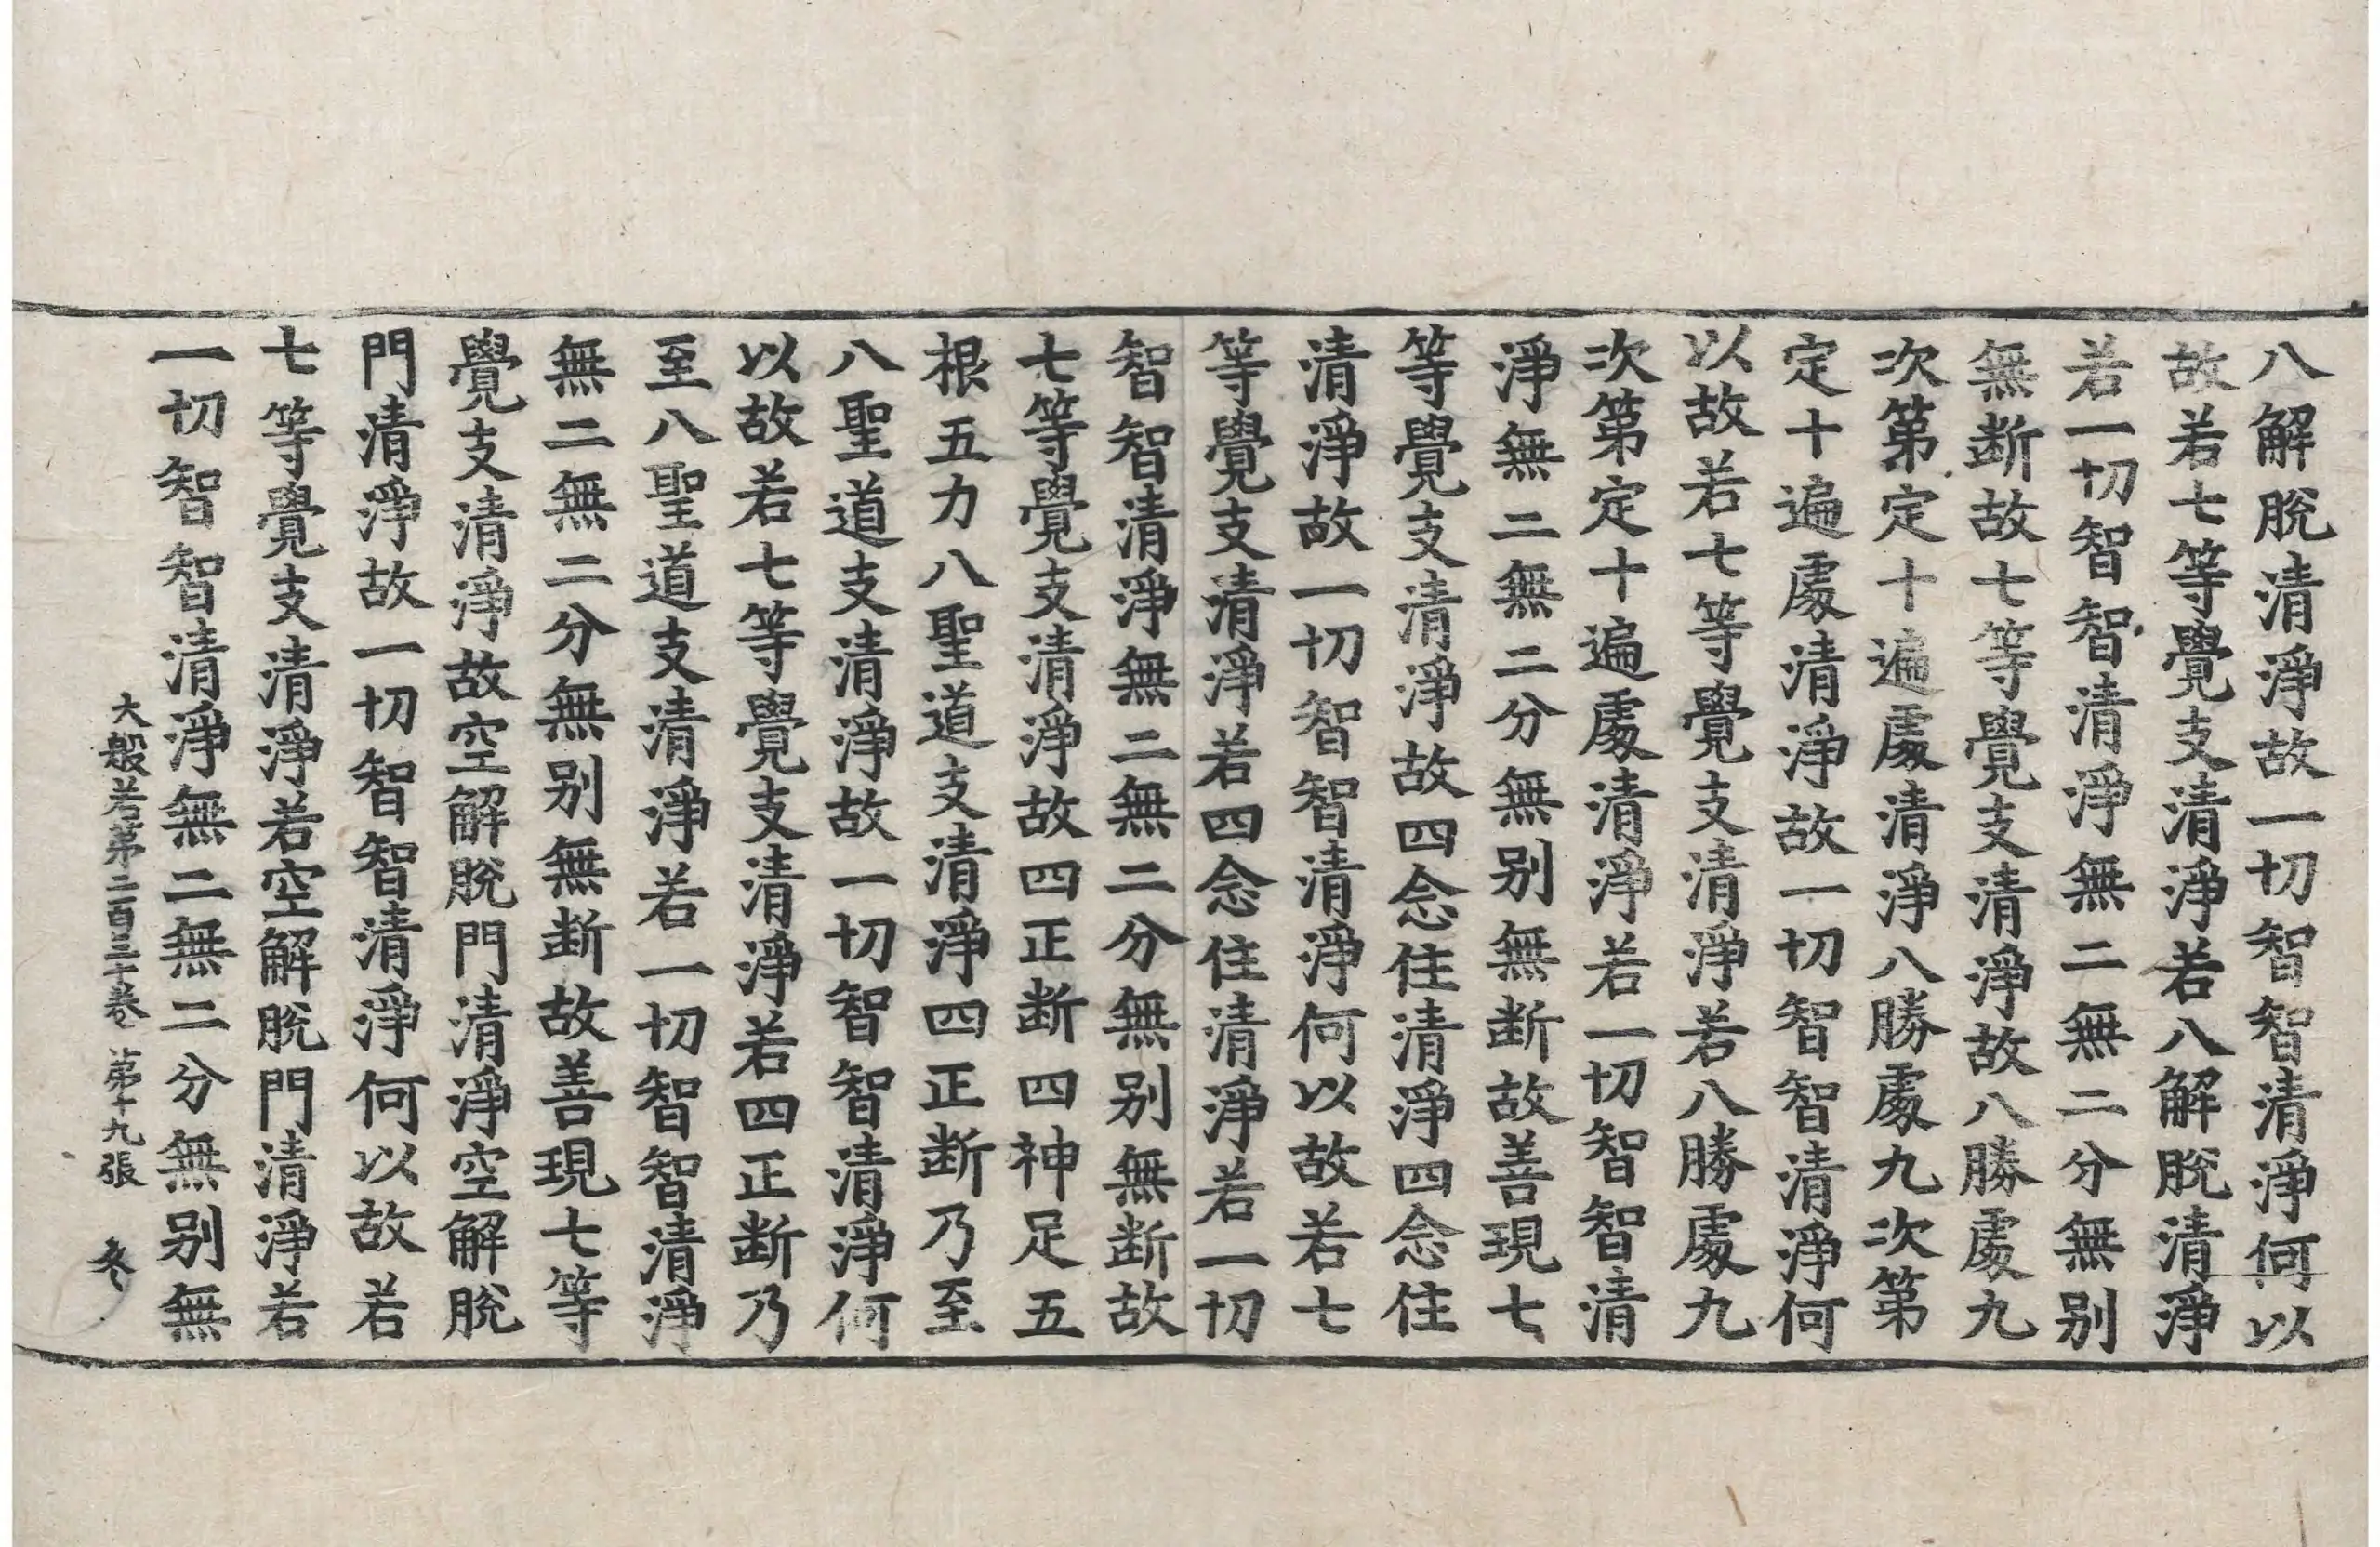 八解脫清淨故一切智智清淨何以
故若七等覺支清淨若八解脫清淨
若一切智智清淨無二無二分無别
無断故七等覺支清淨故八勝處九
次第定十遍處清淨八勝處九次第
定十遍處清淨故一切智智清淨何
以故若七等覺支清淨若八勝處九
次第定十遍處清淨若一切智智清
淨無二無二分無别無断故善現七
等覺支清淨故四念住清淨四念住
清淨故一切智智清淨何以故若七
等覺支清淨若四念住清淨若一切
智智清淨無二無二分無别無断故
七等覺支清淨故四正断四神足五
根五力八聖道支清淨四正断乃至
八聖道支清淨故一切智智清淨何
以故若七等覺支清淨若四正断乃
至八聖道支清淨若一切智智清淨
無二無二分無别無断故善現七等
覺支清淨故空解脫門清淨空解脫
門清淨故一切智智清淨何以故若
七等覺支清淨若空解脫門清淨若
一切智智清淨無二無二分無别無
大般若第二百三十卷 第十九張